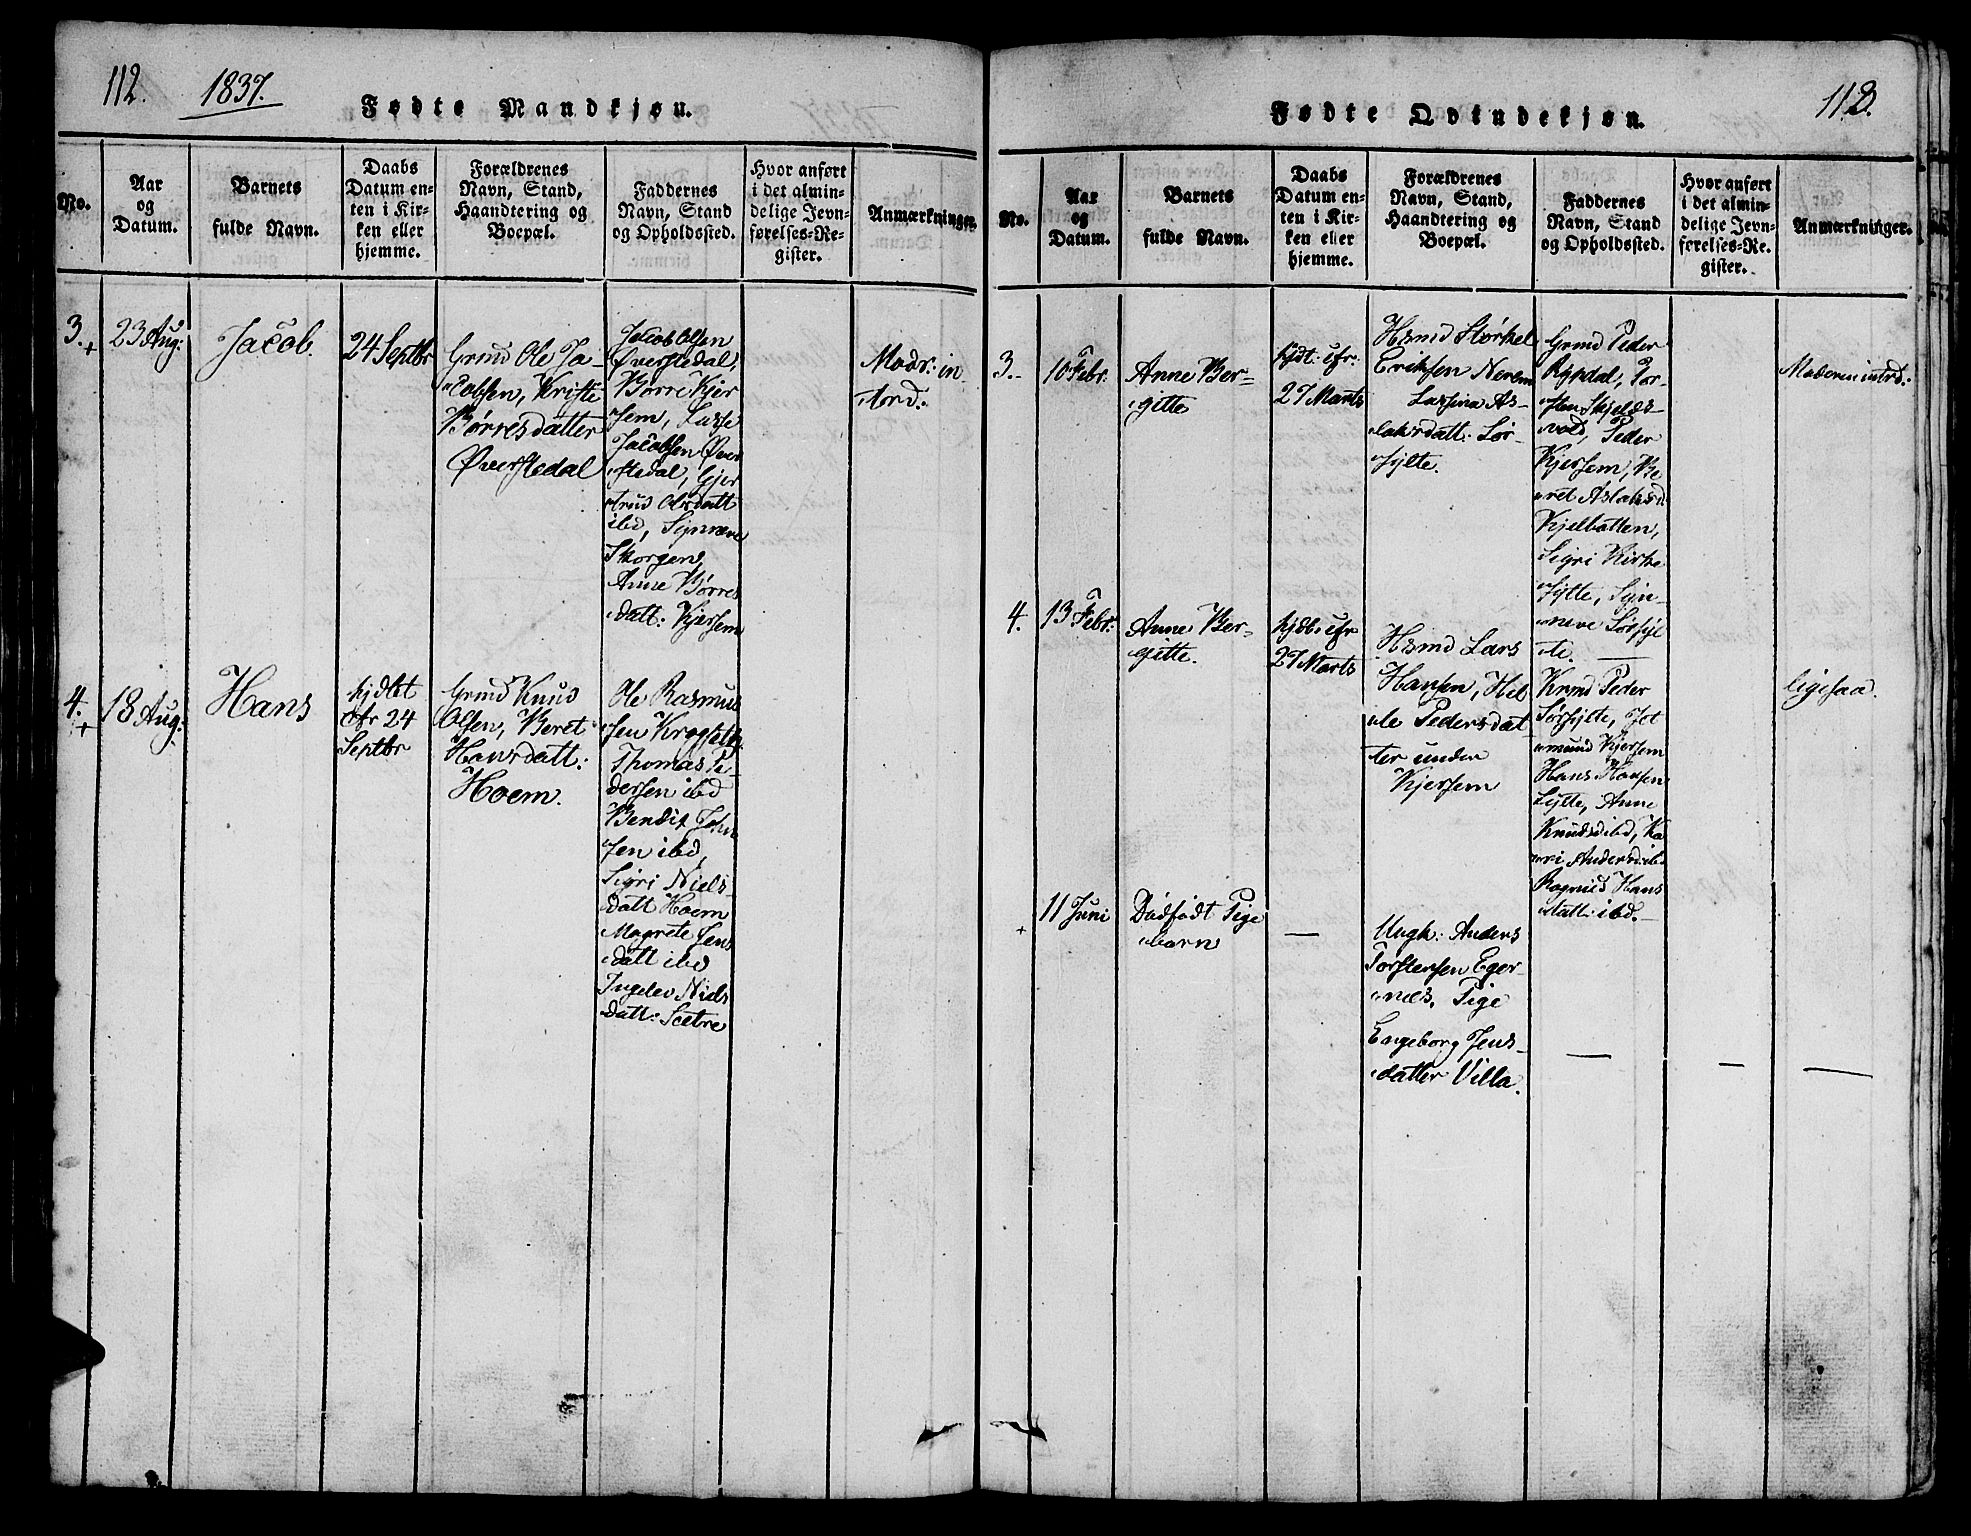 112.
1837.
Fødte Mandkjøn.
No.
Aar
og
Datum.
Barnets
fulde Navn.
Daabs
Datum en-
ten i Kir-
ken eller
hjemme.
Forældrenes
Navn, Stand,
Haandtering og
Boepæl.
Faddernes
Navn, Stand
og Opholdssted.
Hvor anført
i det almin-
delige Jevn-
førelses-Re-
gister.
Anmærkninger.
3.
23 Aug:
Jacob.
24 Septbr
Grmd Ole Ja-
cobsen, Kristi
Børresdatter
Øverstedal
Jacob Olsen
Øverstedal,
Børre Kjer
sem, Lasse
Jacobsen Øver
stedal, Gjer
trud Olsdatt
ibd, Synneve
Skorgens
Anne Børres
datt: Kjersem
Modr: in
trd:
4.
18 Aug:
Hans
hjdbt
cfr 24
Septbr
Grmd Knud
Olsen, Beret
Hansdatt:
Hoem.
Ole Rasmus
sen
Thomas Pe-
dersen ibd
Bendix John
sen ibd,
Sigri Niels-
datt Hoem
Magrete Jens
datt ibd
Ingelev Niels
datt: Sætre
113.
Fødte Qvindekjøn.
No.
Aar
og
Datum.
Barnets
fulde Navn.
Daabs
Datum en-
ten i Kir-
ken eller
hjemme.
Forældrenes
Navn, Stand,
Haandtering og
Boepæl.
Faddernes
Navn, Stand
og Opholdssted.
Hvor anført
i det almin-
delige Jevn-
førelses-Re-
gister.
Anmærkninger.
3.
10 Febr:
Anne Ber-
gitte
hjdt: cfr:
27 Marts
Hsmd Størkel
Eriksen Nerem
Lassina As-
laksdatt: Sør-
sylte.
Grmd Peder
Rypdal, Tor-
sten Skjelds-
vold, Peder
Kjersem, Be
ret Aslaksd
Kjelbotten,
Sigri Kirke
sylte, Syn-
neve Sørsyl
te.
Moderen intrd:
4.
13 Febr:
Anne Ber-
gitte.
hjdb: cfr
27 Marts
Hsmd Lars
Hansen, Hil
le Pedersdat
ter under
Kjersem
Peder
Sørsylte, Jet
mund Kjersem
Hans Hansen
Sylte, Anne
Knudsd ibd, Ka
ri Andersd: ib.
Ragnild Hans
datt: ibd.
ligesaa.
11 Juni
Dødfødt Pige
barn
—
Ungk: Anders
Torstensen Eger
næs, Pige
Engeborg Jens-
datter Villa.
—
—
—